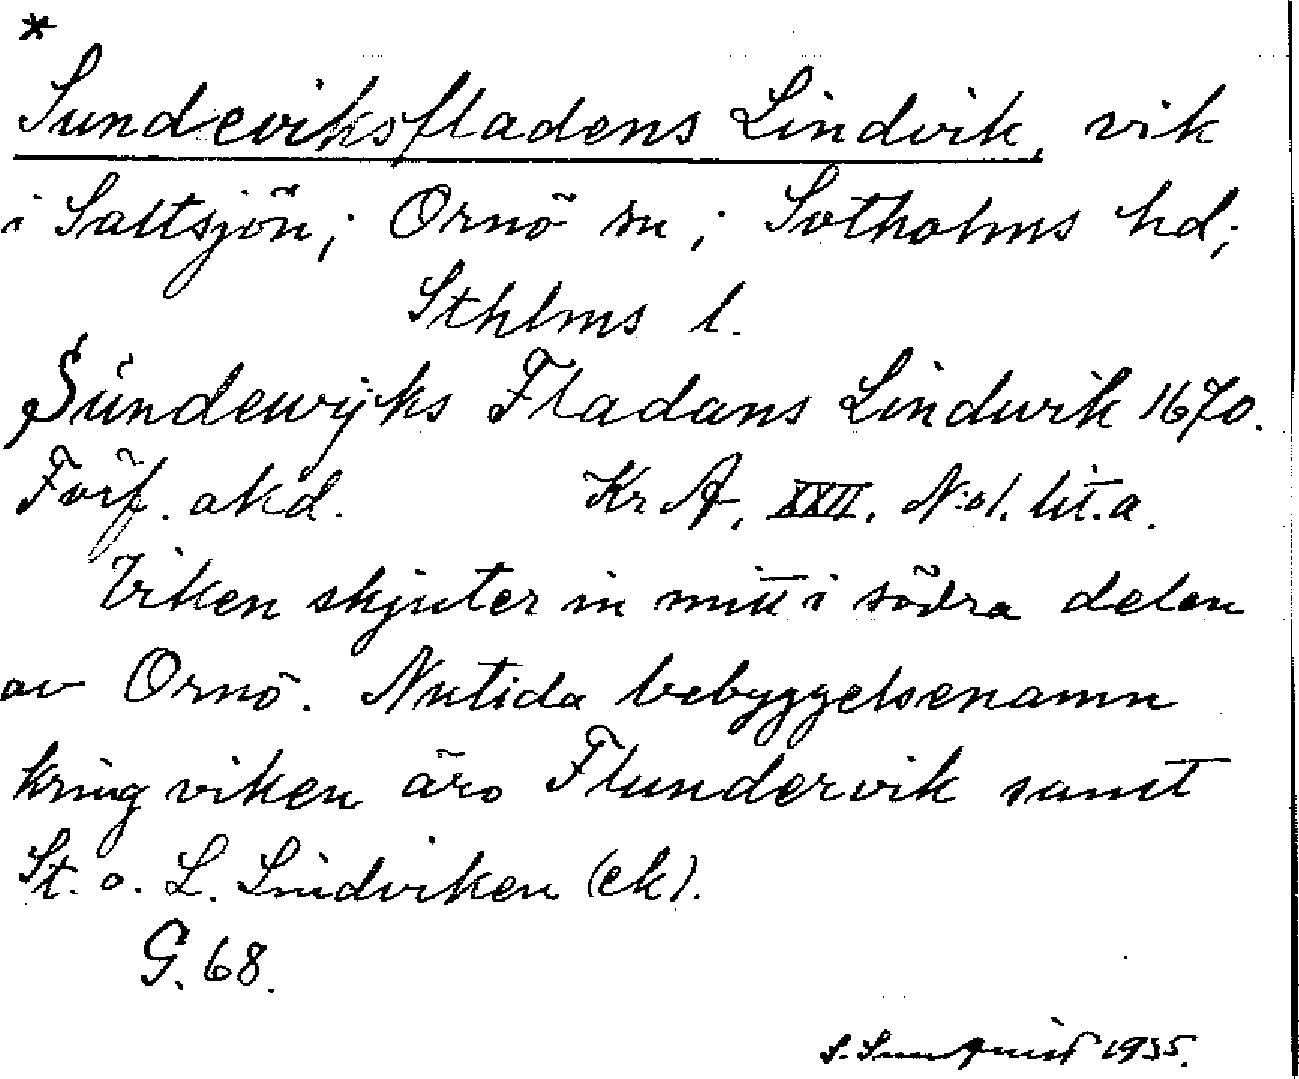 *
Sundeviksfladens Lindvik, vik
i Saltsjön; Ornö sn; Sotholms hd;
Sthlms l.
Sündewijks Fladans Lindwik 1670.
Förf. okd. Kr A, XXII. N:o 1. lit. a.
Viken skjuter in mitt i södra delen
av Ornö. Nutida bebyggelsenamn
kring viken äro Flundervik samt
St. o. L. Lindviken (ek).
G. 68.
S. Sundquist 1935.